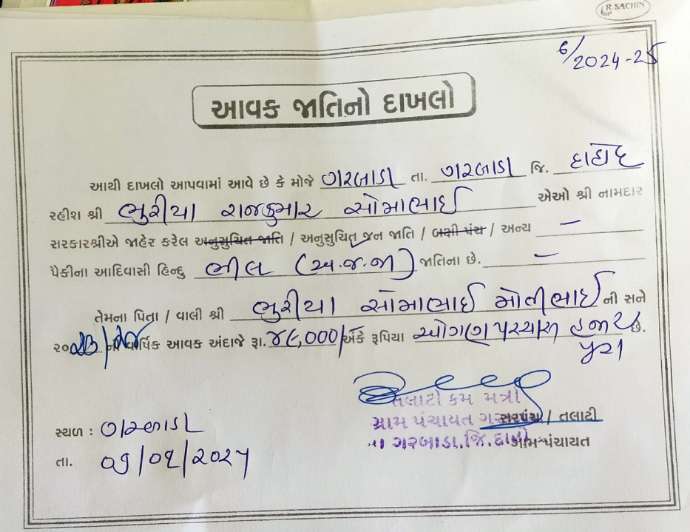 R. SACHIN
6/2024-25
આવક જાતિનો દાખલો
આથી દાખલો આપવામાં આવે છે કે મોજે ગરબાડા તા. ગરબાડા જિ. દાહોદ
રહીશ શ્રી ભુરીયા રાજકુમાર સોમાભાઈ એઓ શ્રી નામદાર
સરકારશ્રીએ જાહેર કરેલ અનુસુચિત જાતિ / અનુસુચિત જન જાતિ / બક્ષી પંચ / અન્ય –
પૈકીના આદિવાસી હિન્દુ ભીલ (અ.જ.જા) જાતિના છે. –
તેમના પિતા / વાલી શ્રી ભુરીયા સોમાભાઈ મોતીભાઈ ની સને
૨૦૨૩/૨૪ ના વાર્ષિક આવક અંદાજે રૂા. ૪૯,૦૦૦/ અંકે રૂપિયા ઓગણપચાસ હજાર છે.
પુરા
તલાટી કમ મંત્રી
ગ્રામ પંચાયત સરપંચ / તલાટી
સ્થળ : ગરબાડા
તા. ગરબાડા. જિ. દાહોદ ગ્રામ પંચાયત
તા.